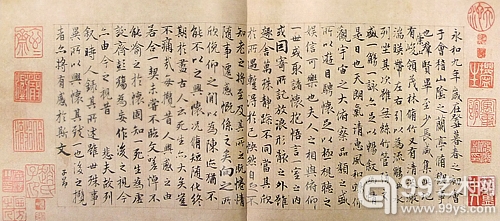 永和九年歲在癸丑暮春之初會
于會稽山陰之蘭亭脩禊事
也羣賢畢至少長咸集此地
有峻領茂林脩竹又有清流激
湍暎帶左右引以為流觴曲水
列坐其次雖無絲竹管弦之
盛一觴一詠亦足以暢敘幽情
是日也天朗氣清惠風和暢仰
觀宇宙之大俯察品類之盛
所以遊目騁懷足以極視聽之
娛信可樂也夫人之相與俯仰
一世或取諸懷抱悟言一室之內
或因寄所託放浪形骸之外雖
趣舍萬殊靜躁不同當其欣
於所遇蹔得於己快然自足不
知老之將至及其所之既惓情
隨事遷感慨係之矣向之所
欣俛仰之間以為陳迹猶不
能不以之興懷況脩短隨化終
期於盡古人云死生亦大矣豈
不痛哉每攬昔人興感之由
若合一契未嘗不臨文嗟悼不
能喻之於懷固知一死生為虛
誕齊彭殤為妄作後之視今
亦由今之視昔悲夫故列
敘時人錄其所述雖世殊事
異所以興懷其致一也後之攬
者亦將有感於斯文
子昂
99艺术网
99ys.com